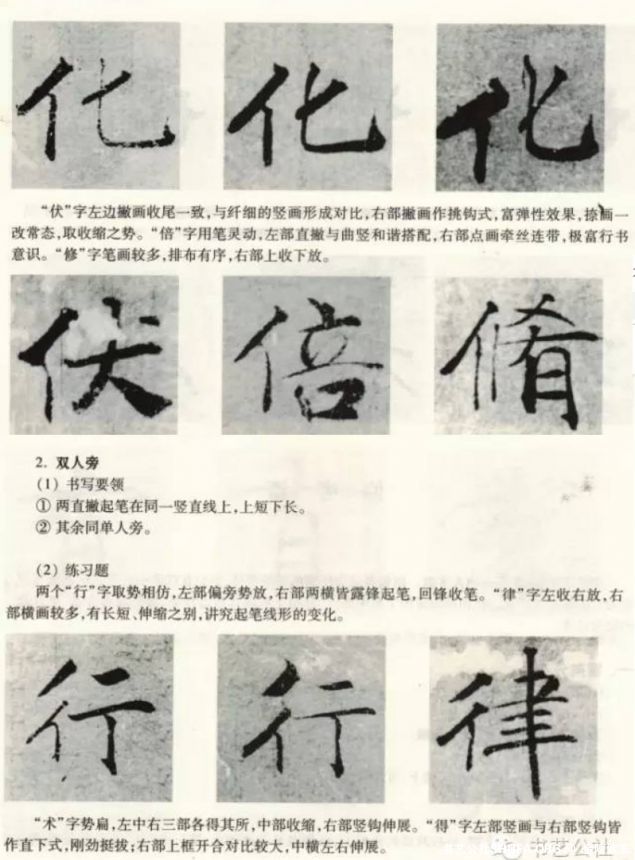 化 化 化
“伏”字左边撇画收尾一致，与纤细的竖画形成对比，右部撇画作挑钩式，富弹性效果，捺画一
改常态，取收缩之势。“倍”字用笔灵动，左部直撇与曲竖和谐搭配，右部点画牵丝连带，极富行书
意识。“修”字笔画较多，排布有序，右部上收下放。
伏 倍 脩
2. 双人旁
(1) 书写要领
① 两直撇起笔在同一竖直线上，上短下长。
② 其余同单人旁。
(2) 练习题
两个“行”字取势相仿，左部偏旁势放，右部两横皆露锋起笔，回锋收笔。“律”字左收右放，右
部横画较多，有长短、伸缩之别，讲究起笔线形的变化。
行 行 律
“术”字势扁，左中右三部各得其所，中部收缩，右部竖钩伸展。“得”字左部竖画与右部竖钩皆
作直下式，刚劲挺拔；右部上框开合对比较大，中横左右伸展。